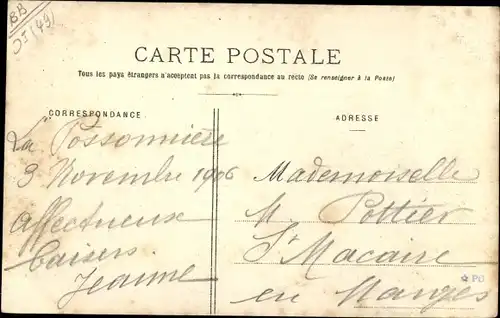 BB
JJ (49)
CARTE POSTALE
Tous les pays étrangers n'acceptent pas la correspondance au recto (Se renseigner à la Poste)
CORRESPONDANCE
La Possonnière
3 Novembre 1906
affectueux
baisers
Jeanne
ADRESSE
Mademoiselle
M. Pottier
St Macaire
en Mauges
PG